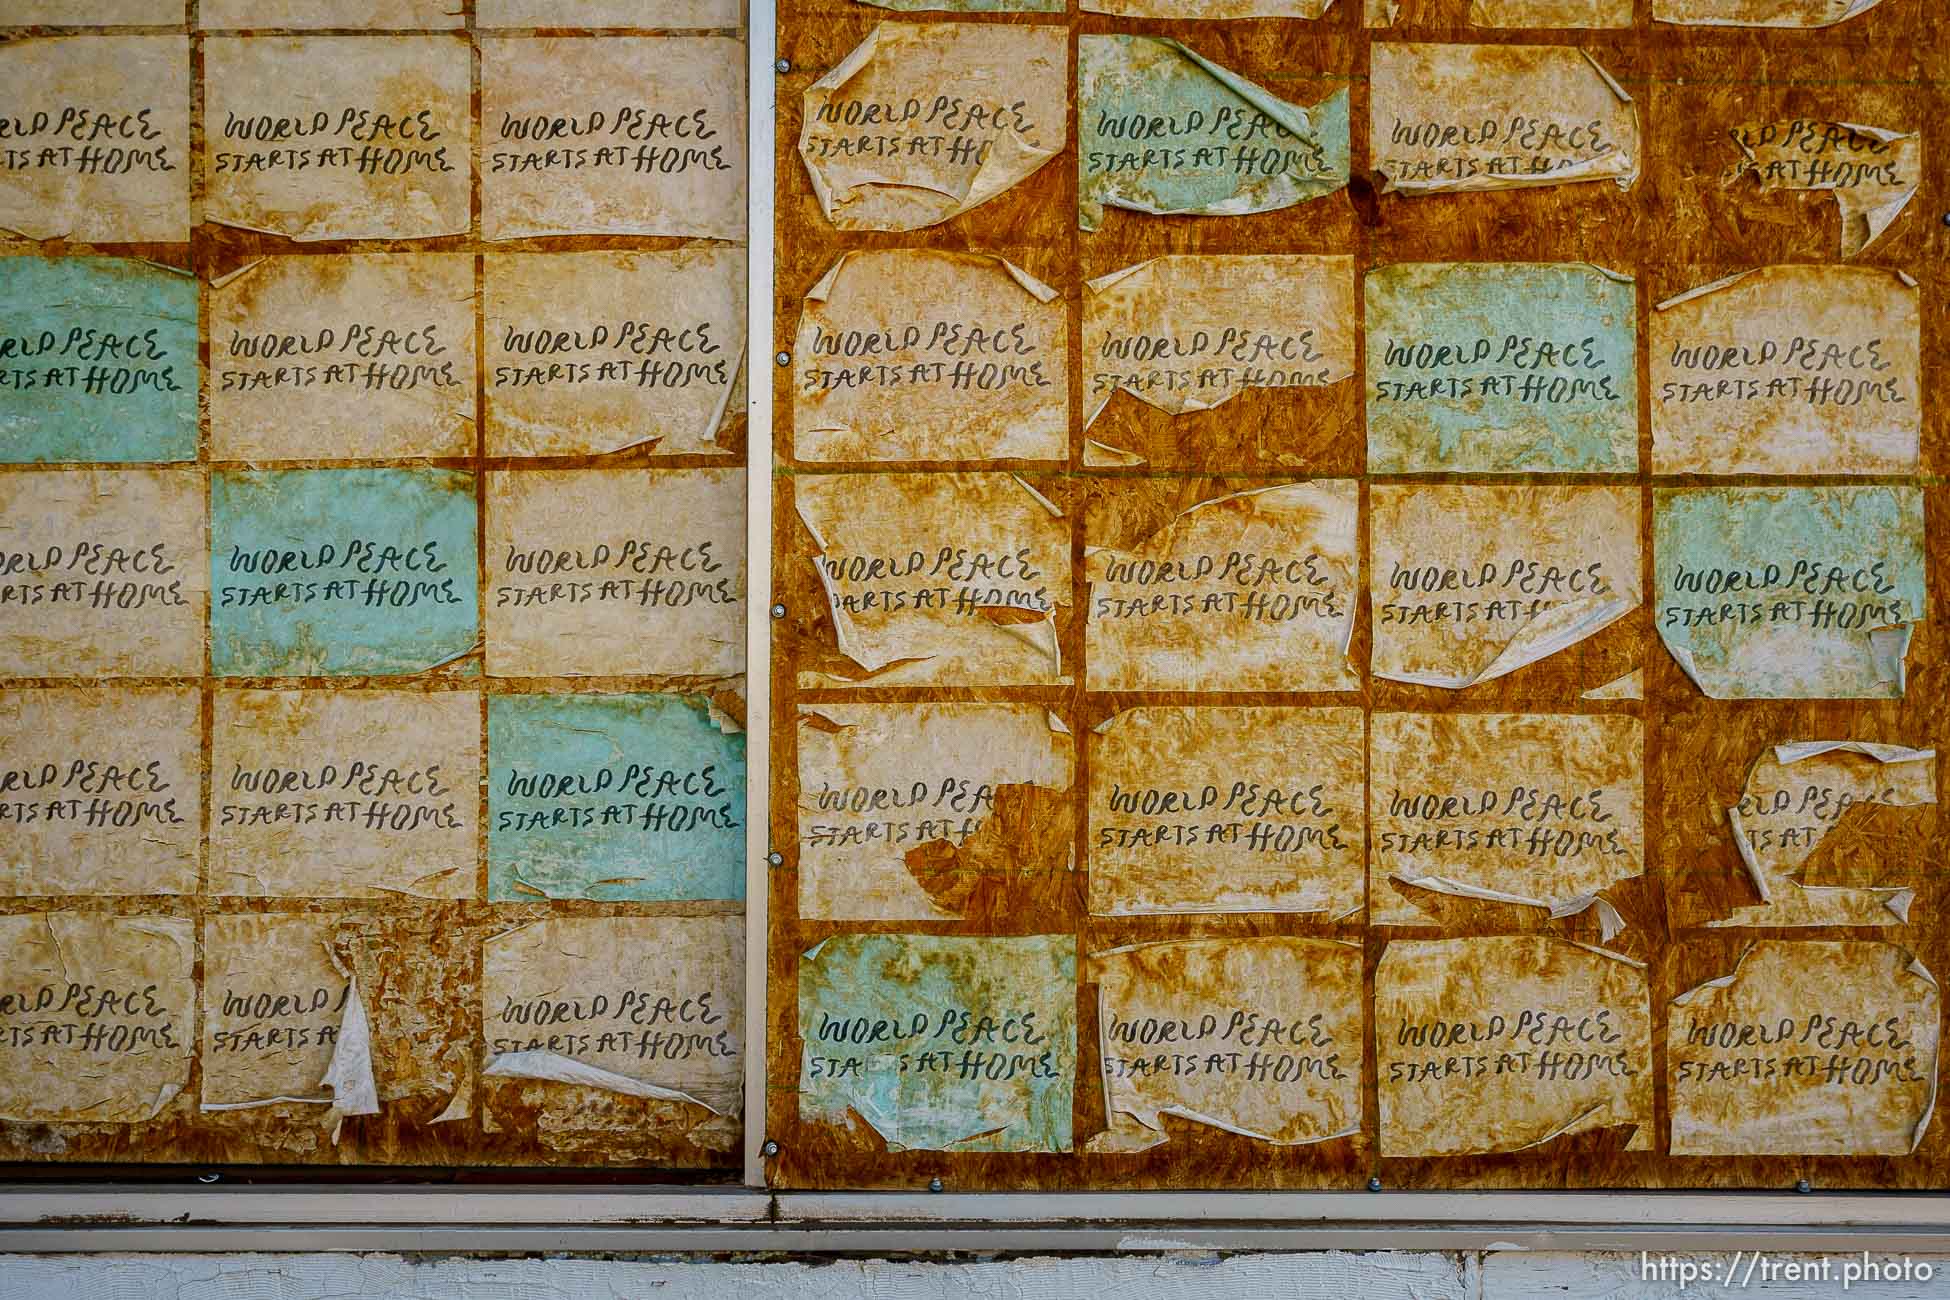 RLD PEACE
TS AT HOME
WORLD PEACE
STARTS AT HOME
WORLD PEACE
STARTS AT HOME
WORLD PEACE
STARTS AT HO
WORLD PEAC
STARTS AT HOME
WORLD PEACE
STARTS AT HO
RLD PEAC
AT HOME
RLD PEACE
RTS AT HOME
WORLD PEACE
STARTS AT HOME
WORLD PEACE
STARTS AT HOME
WORLD PEACE
STARTS AT HOME
WORLD PEACE
STARTS AT HOME
WORLD PEACE
STARTS AT HOME
WORLD PEACE
STARTS AT HOME
ORLD PEACE
RTS AT HOME
WORLD PEACE
STARTS AT HOME
WORLD PEACE
STARTS AT HOME
WORLD PEACE
ARTS AT HOME
WORLD PEACE
STARTS AT HOME
WORLD PEACE
STARTS AT H
WORLD PEACE
STARTS AT HOME
RLD PEACE
RTS AT HOME
WORLD PEACE
STARTS AT HOME
WORLD PEACE
STARTS AT HOME
WORLD PEA
STARTS AT H
WORLD PEACE
STARTS AT HOME
WORLD PEACE
STARTS AT HOME
RLD PEAC
TS AT
RLD PEACE
RTS AT HOME
WORLD P
STARTS A
WORLD PEACE
STARTS AT HOME
WORLD PEACE
STA S AT HOME
WORLD PEACE
STARTS AT HOME
WORLD PEACE
STARTS AT HOME
WORLD PEACE
STARTS AT HOME
https://trent.photo